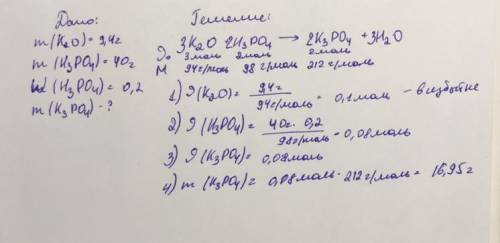 Дано:
m(K₂O)=9,4г
m(H₃PO₄)=40г
W(H₃PO₄)=0,2
m(K₃PO₄)-?
Решение:
3K₂O 2H₃PO₄ → 2K₃PO₄ + 3H₂O
Θ₀ 3моль 2моль 2моль
M 94г/моль 98 г/моль 212 г/моль
1) Θ(K₂O)= 9,4г / 94г/моль = 0,1моль - в избытке
2) Θ(H₃PO₄)= 40г · 0,2 / 98г/моль = 0,08моль
3) Θ(K₃PO₄)= 0,08моль
4) m(K₃PO₄)= 0,08моль · 212г/моль = 16,95г